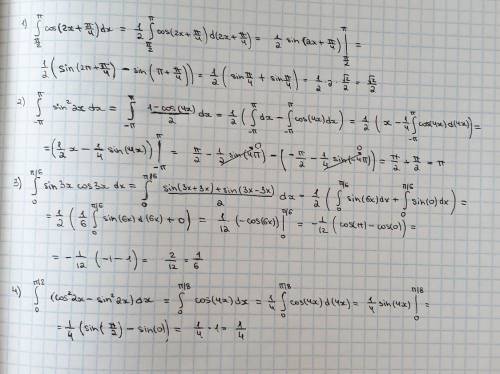 1) ∫_{π/2}^{π} cos(2x + π/4) dx = 1/2 ∫_{π/2}^{π} cos(2x + π/4) d(2x + π/4) = 1/2 sin(2x + π/4) |_{π/2}^{π} =
1/2 (sin(2π + π/4) - sin(π + π/4)) = 1/2 (sin π/4 + sin π/4) = 1/2 · 2 · √2/2 = √2/2
2) ∫_{-π}^{π} sin² 2x dx = ∫_{-π}^{π} (1-cos(4x))/2 dx = 1/2 (∫_{-π}^{π} dx - ∫_{-π}^{π} cos(4x) dx) = 1/2 (x - 1/4 ∫_{-π}^{π} cos(4x) d(4x)) =
= (1/2 x - 1/4 sin(4x)) |_{-π}^{π} = π/2 - 1/2 sin(4π) 0 - (-π/2 - 1/4 sin(-4π) 0) = π/2 + π/2 = π
3) ∫_0^{π/6} sin 3x cos 3x dx = ∫_0^{π/6} (sin(3x+3x) + sin(3x-3x))/2 dx = 1/2 (∫_0^{π/6} sin(6x) dx + ∫_0^{π/6} sin(0) dx) =
= 1/2 (1/6 ∫_0^{π/6} sin(6x) d(6x) + 0) = 1/12 (-cos(6x)) |_0^{π/6} = -1/12 (cos(π) - cos(0)) =
= -1/12 (-1-1) = 2/12 = 1/6
4) ∫_0^{π/8} (cos² 2x - sin² 2x) dx = ∫_0^{π/8} cos(4x) dx = 1/4 ∫_0^{π/8} cos(4x) d(4x) = 1/4 sin(4x) |_0^{π/8} =
= 1/4 (sin(π/2) - sin(0)) = 1/4 · 1 = 1/4